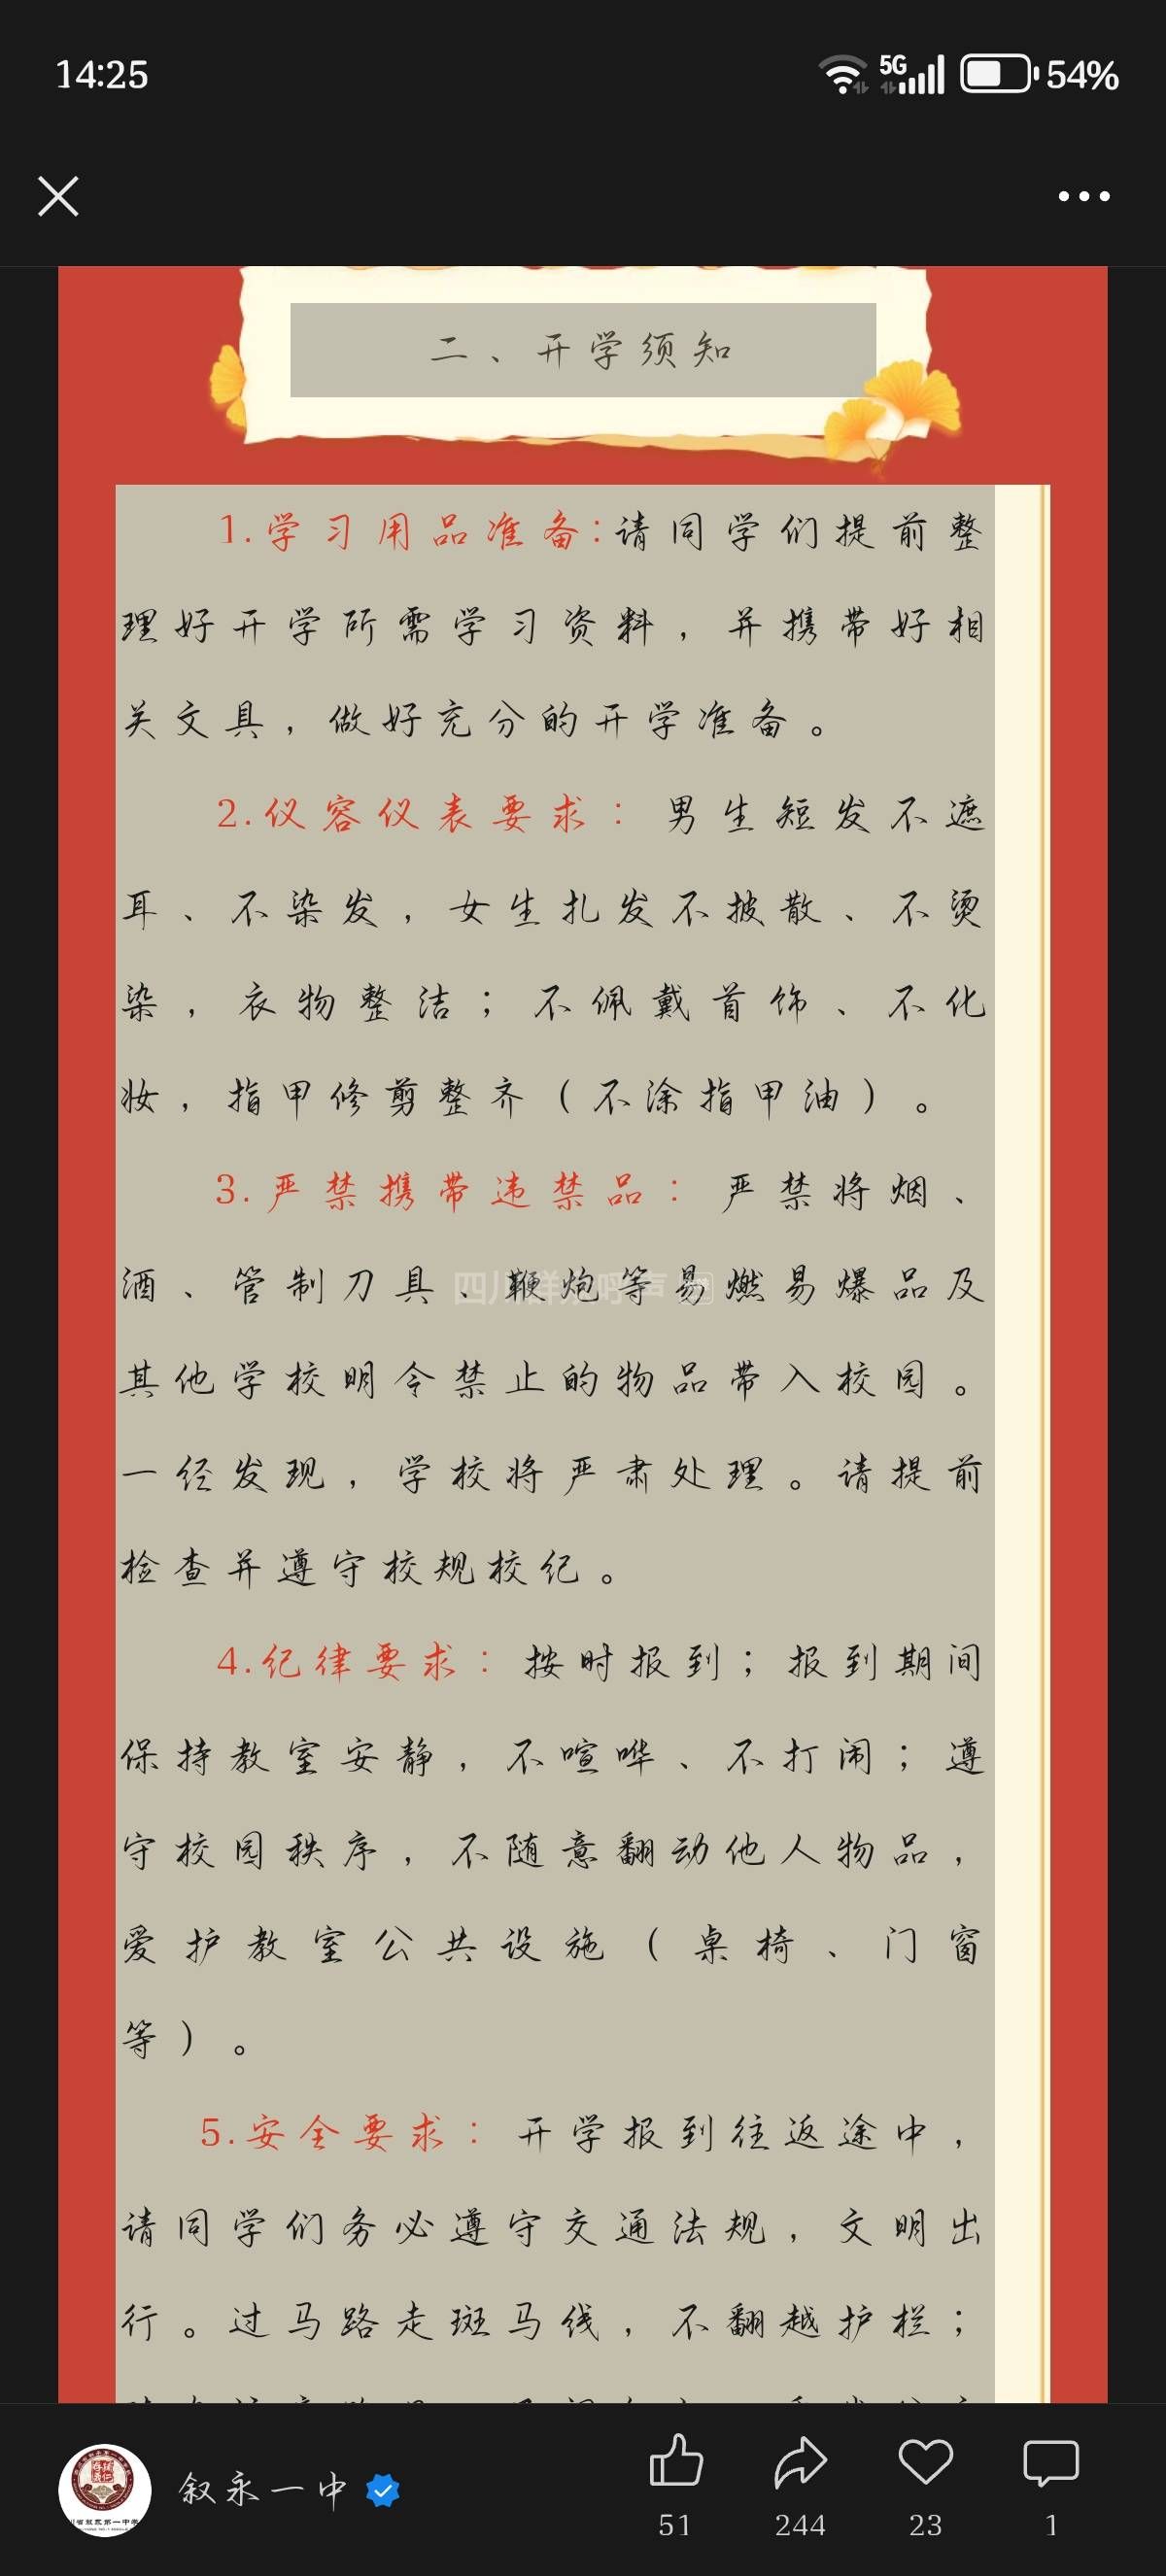 14:25
5G
54%
二、开学须知
1.学习用品准备:请同学们提前整
理好开学所需学习资料，并携带好相
关文具，做好充分的开学准备。
2.仪容仪表要求：男生短发不遮
耳、不染发，女生扎发不披散、不烫
染，衣物整洁；不佩戴首饰、不化
妆，指甲修剪整齐（不涂指甲油）。
3.严禁携带违禁品：严禁将烟、
酒、管制刀具、鞭炮等易燃易爆品及
其他学校明令禁止的物品带入校园。
一经发现，学校将严肃处理。请提前
检查并遵守校规校纪。
4.纪律要求：按时报到；报到期间
保持教室安静，不喧哗、不打闹；遵
守校园秩序，不随意翻动他人物品，
爱护教室公共设施（桌椅、门窗
等）。
5.安全要求：开学报到往返途中，
请同学们务必遵守交通法规，文明出
行。过马路走斑马线，不翻越护栏；
叙永一中
51
244
23
1